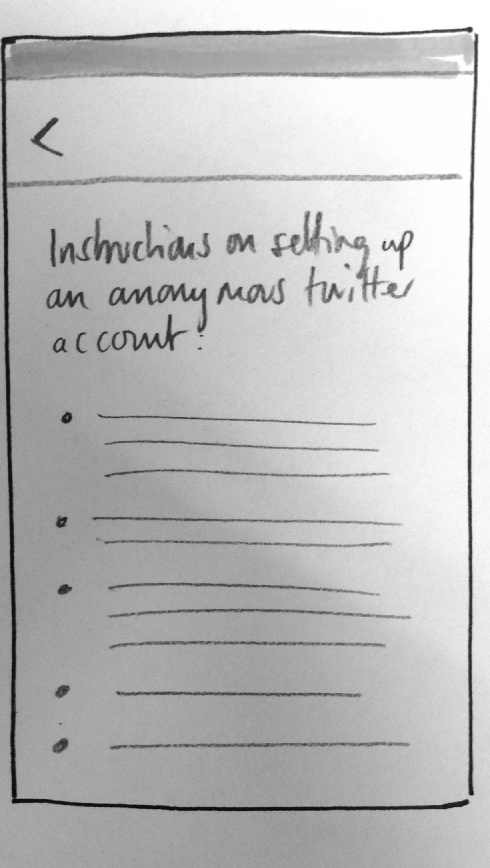 Instructions on setting up
an anonymous twitter
account: